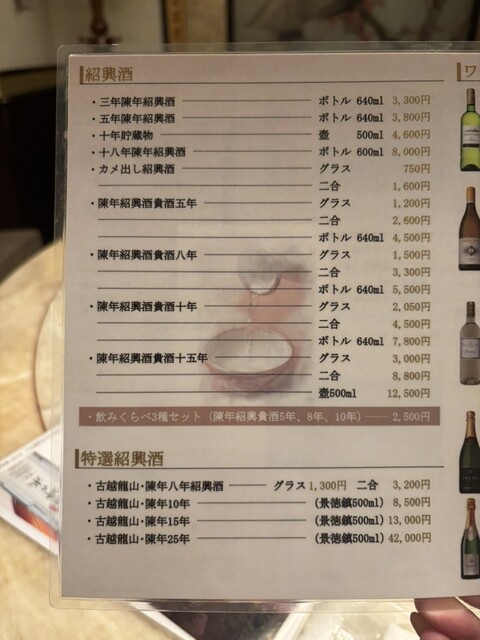 紹興酒
・三年陳年紹興酒 ボトル 640ml 3,300円
・五年陳年紹興酒 ボトル 640ml 3,800円
・十年貯蔵物 壺 500ml 4,600円
・十八年陳年紹興酒 ボトル 600ml 8,000円
・カメ出し紹興酒 グラス 750円
二合 1,600円
・陳年紹興酒貴酒五年 グラス 1,200円
二合 2,600円
ボトル 640ml 4,500円
・陳年紹興酒貴酒八年 グラス 1,500円
二合 3,300円
ボトル 640ml 5,500円
・陳年紹興酒貴酒十年 グラス 2,050円
二合 4,500円
ボトル 640ml 7,800円
・陳年紹興酒貴酒十五年 グラス 3,000円
二合 8,800円
壺500ml 12,500円
・飲みくらべ3種セット（陳年紹興貴酒5年、8年、10年） 2,500円
特選紹興酒
・古越龍山・陳年八年紹興酒 グラス 1,300円 二合 3,200円
・古越龍山・陳年10年 (景徳鎮500ml) 8,500円
・古越龍山・陳年15年 (景徳鎮500ml) 13,000円
・古越龍山・陳年25年 (景徳鎮500ml) 42,000円
ワ